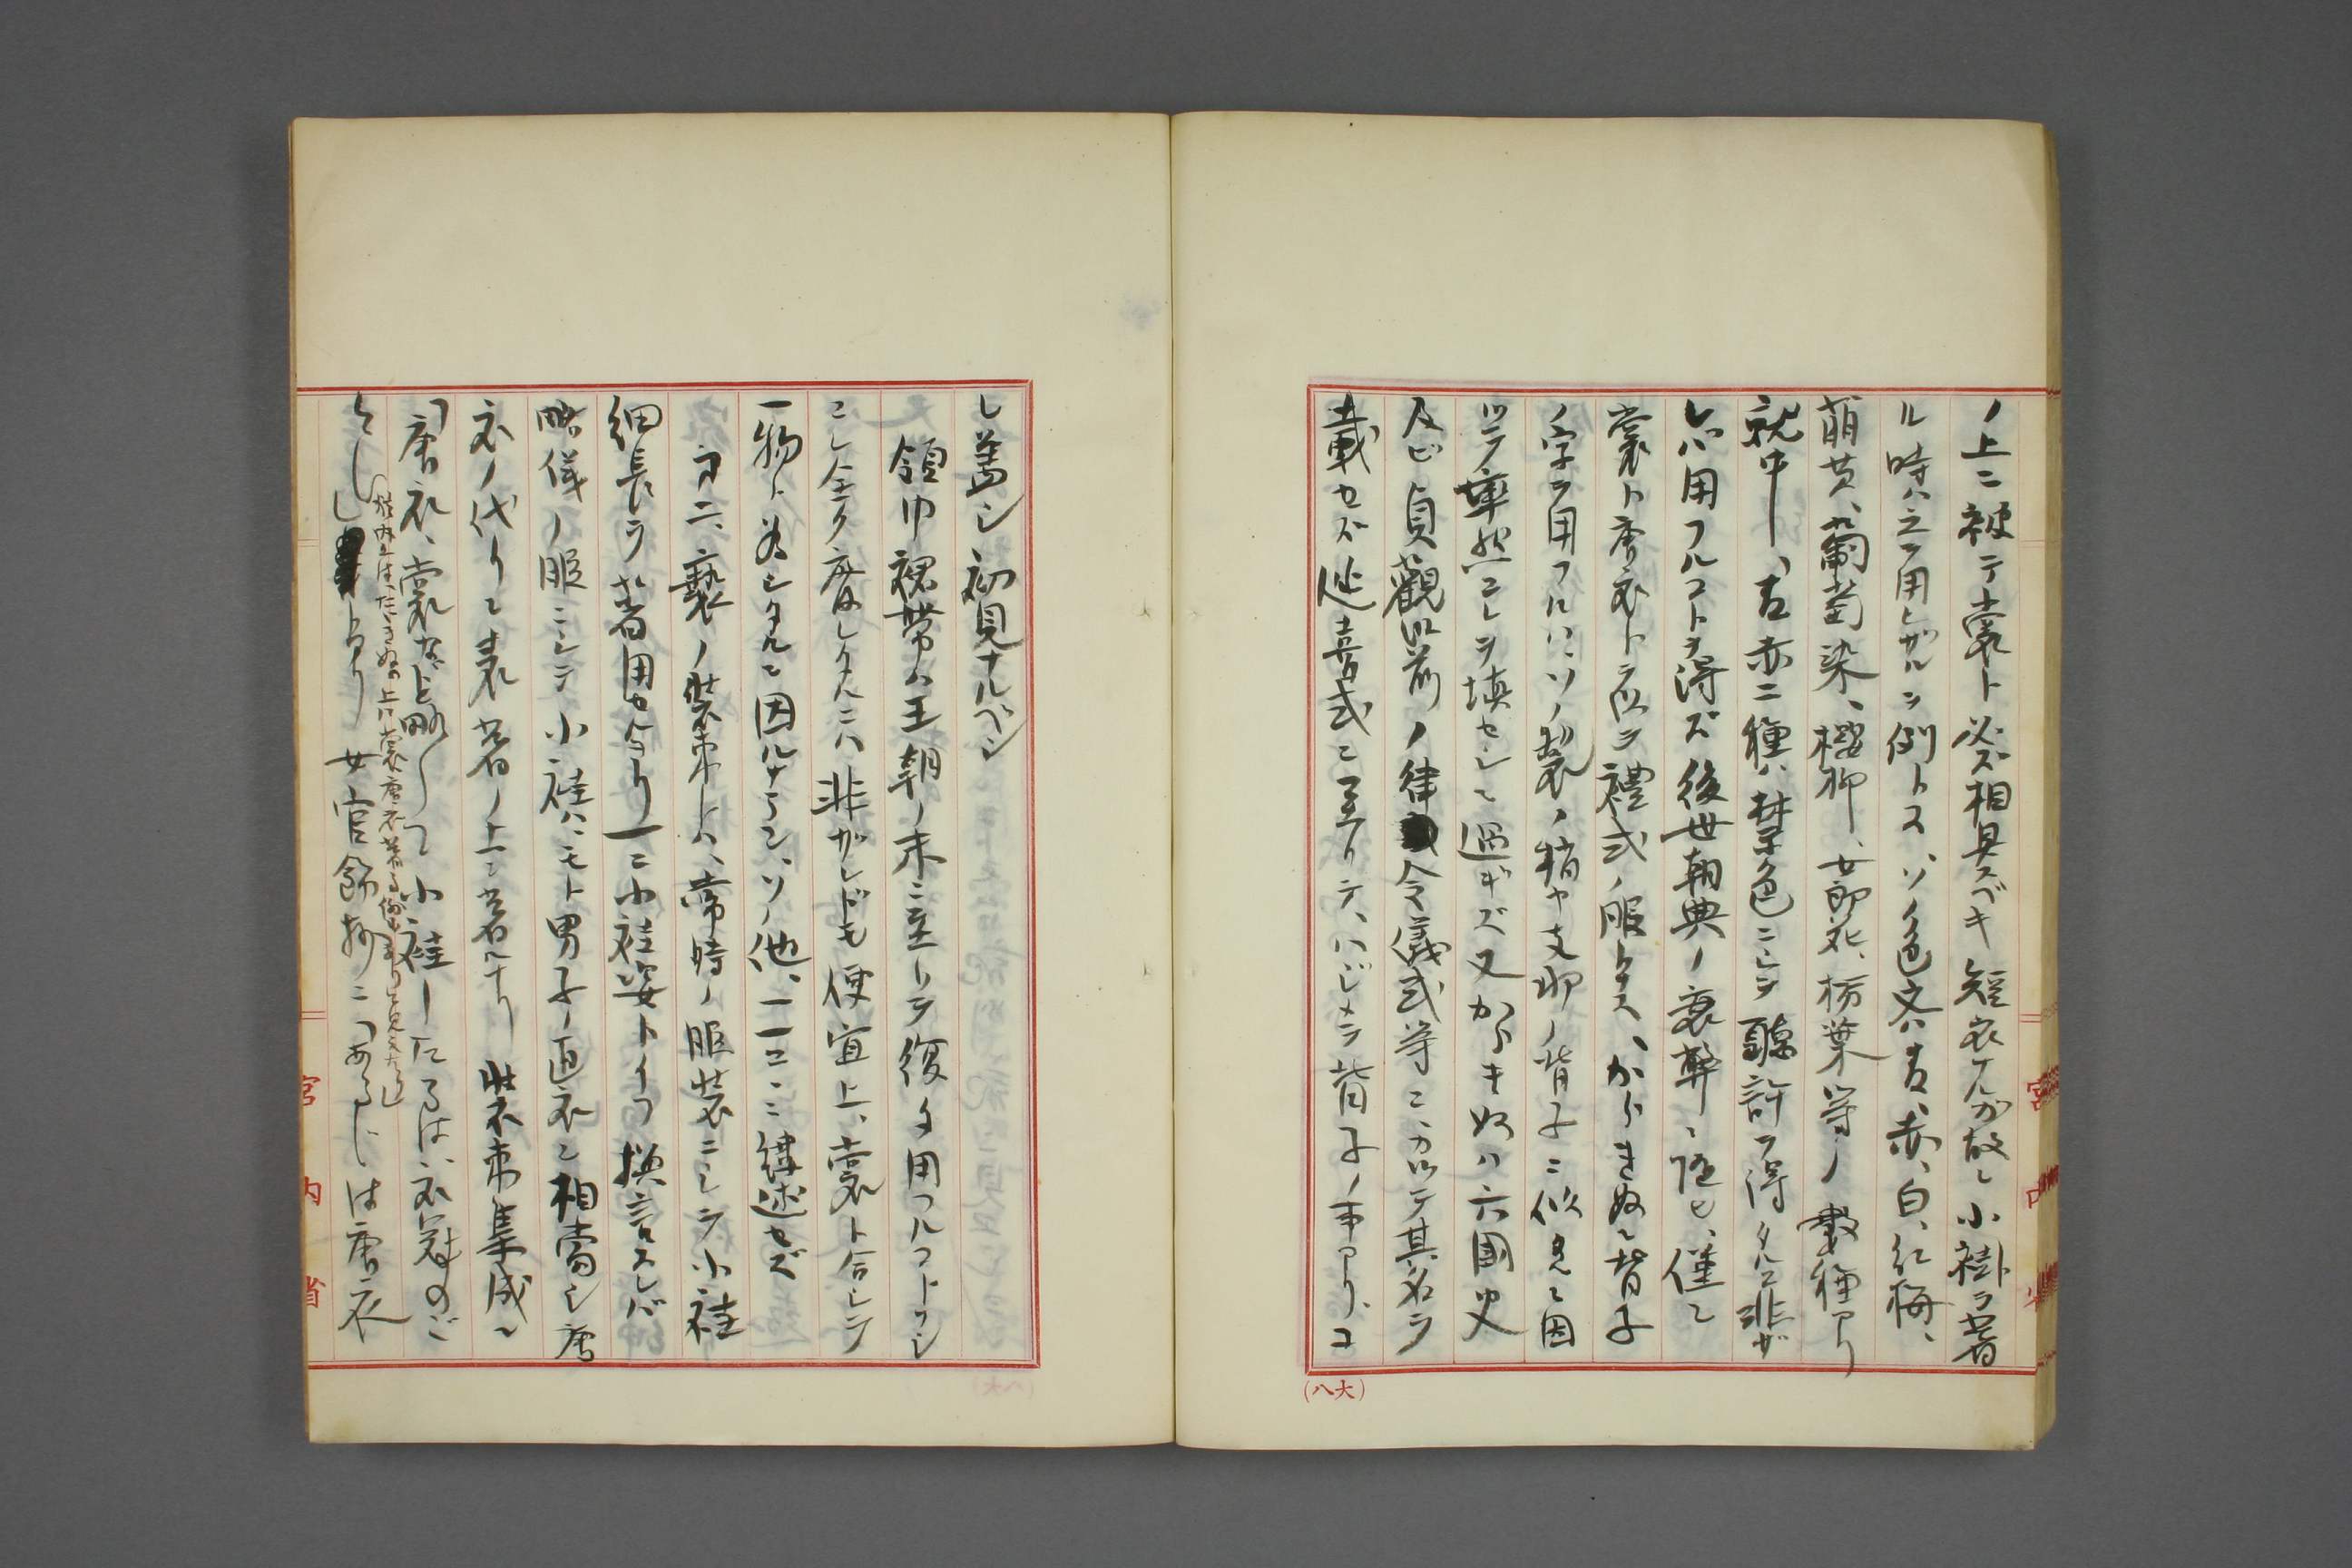 ノ上ニ被テ裳ト必ズ相具スベキ短衣ナルガ故ニ小褂ヲ著
ル時ハ之ヲ用ヒザルヲ例トス、ソノ色文ハ青、赤、白、紅梅、
萌黄、葡萄染、櫻、柳、女郎花、朽葉等ノ數種アリ
就中、青赤二種ハ禁色ニシテ聽許ヲ得タルニ非ザ
レバ用フルコトヲ得ズ後世朝典ノ衰弊ニ随ヒ、僅ニ
裳ト唐衣トノミヲ禮式ノ服トス、からきぬニ背子
ノ字ヲ用フルハ、ソノ製ノ稍ヤ支那ノ背子ニ似タルニ因
リテ率然コレヲ填セシニ過ギズ又からきぬハ六國史
及ビ貞觀以前ノ律令儀式等ニ於テ其名ヲ
載セズ延喜式ニ至リテ、ハジメテ背子ノ事アリ、コ
(八大)
レ蓋シ初見ナルベシ
領巾裙帶ハ王朝ノ末ニ至リテ復タ用フルコトナシ
コレ全ク廢レタルニハ非ザレドモ便宜上、裳ト合シテ
一物ト為シタルニ因ルナラン、ソノ他、一一ココニ縷述セズ
第二、褻ノ裝束トハ、常時ノ服裝ニシテ小褂
細長ヲ著用セルナリ一ニ小褂姿トイフ換言スレバ
略儀ノ服ニシテ小褂ハ、モト男子ノ直衣ニ相當シ唐
衣ノ代リニ表著ノ上ニ著ルナリ 裝束集成ニ
「唐衣、裳など略して小褂したるは、衣冠のご
とし
しとあり 女官飾抄ニ「あるじは唐衣
宮内省